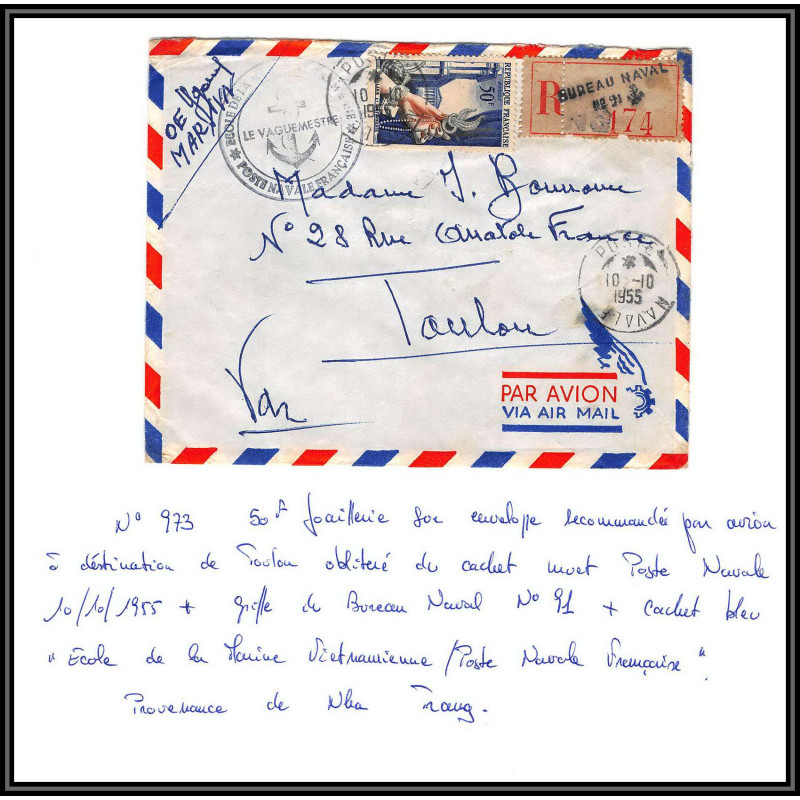 OE
MARIVIN
ECOLE DE LA
LE VAGUEMESTRE
POSTE NAVALE FRANÇAISE
POSTE
10 - 10
1955
50F
REPUBLIQUE FRANÇAISE
BUREAU NAVAL
N° 91
R
N° 174
Madame J.
N° 28 Rue Anatole France
Toulon
Var
POSTE
10 - 10
1955
NAVALE
PAR AVION
VIA AIR MAIL
N° 973 50F Joaillerie sur enveloppe recommandée par avion
à déstination de Toulon obliteré du cachet muet Poste Navale
10/10/1955 + griffe du Bureau Naval N° 91 + cachet bleu
"Ecole de la Marine Vietnamienne / Poste Navale Française".
Provenance de Nha Trang.